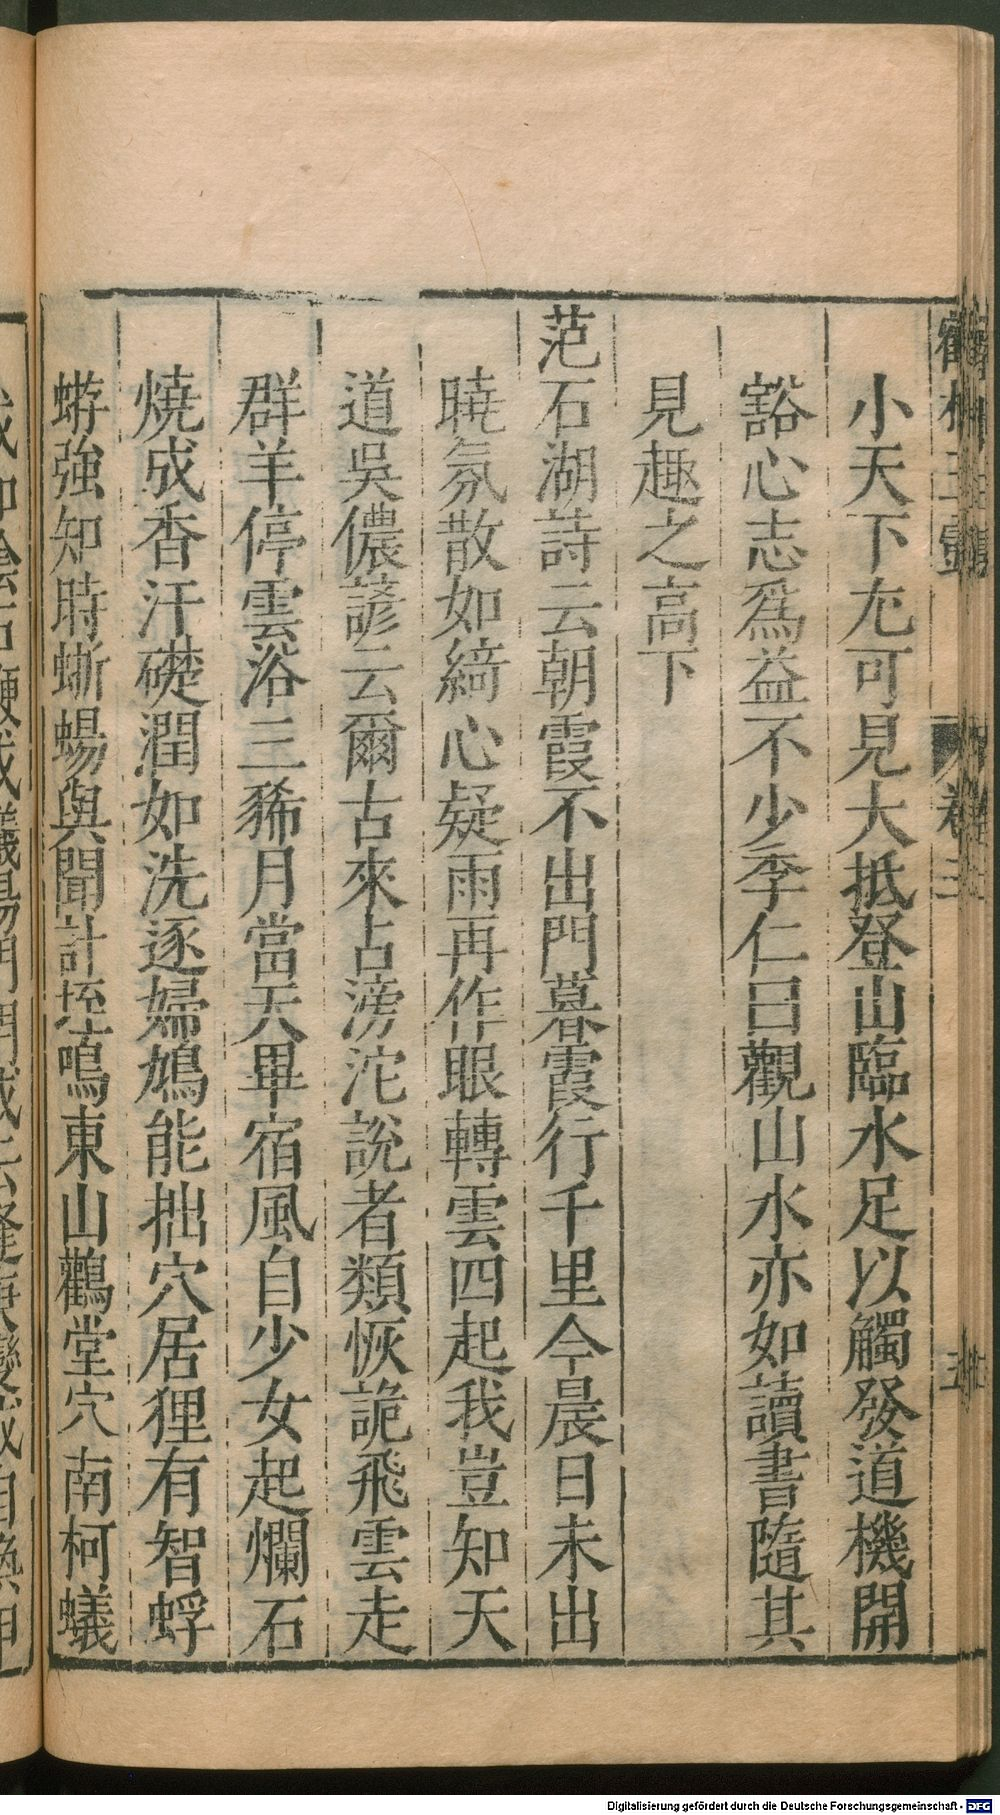 小天下尢可見大抵登山臨水足以觸發道機開
豁心志爲益不少季仁曰觀山水亦如讀書隨其
見趣之高下
范石湖詩云朝霞不出門暮霞行千里今晨日未出
曉氛散如綺心疑雨再作眼轉雲四起我豈知天
道吳儂諺云爾古來占滂沱說者類恢詭飛雲走
群羊停雲浴三豨月當天畢宿風自少女起爛石
燒成香汗礎潤如洗逐婦鳩能拙穴居狸有智蜉
蝣強知時蜥蜴與聞計垤鳴東山鸛堂穴南柯蟻
卷三
Digitalisierung gefördert durch die Deutsche Forschungsgemeinschaft - DFG